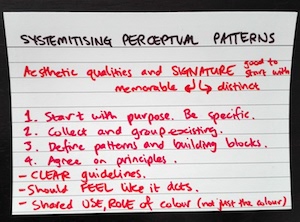 SYSTEMITISING PERCEPTUAL PATTERNS
Aesthetic qualities and SIGNATURE good to start with
memorable ↲↳ distinct
1. Start with purpose. Be specific.
2. Collect and group existing.
3. Define patterns and building blocks.
4. Agree on principles.
- CLEAR guidelines.
- Should FEEL like it acts.
- Shared USE, ROLE of colour (not just the colour)